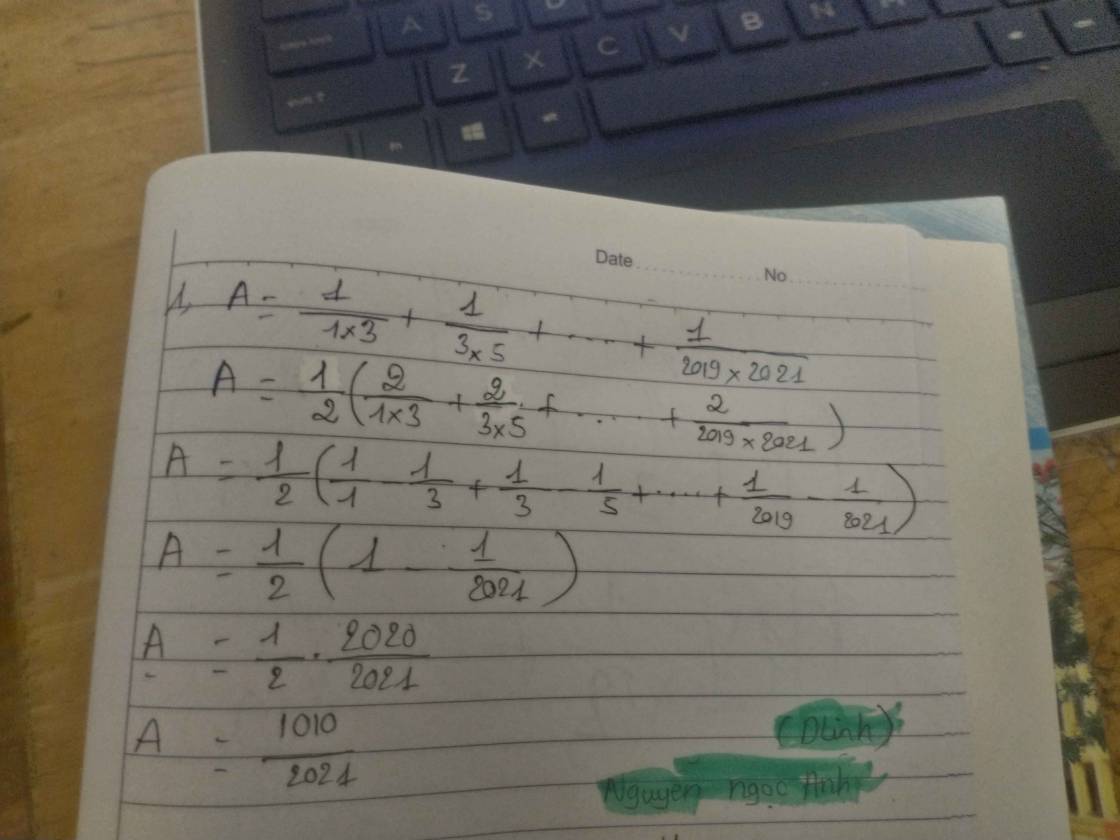 A S D
caps lock
Z X C V B N M
shift ↑
fn
Date.................No.........
1, A = 1/(1×3) + 1/(3×5) + ..... + 1/(2019×2021)
A = 1/2 (2/(1×3) + 2/(3×5) + ..... + 2/(2019×2021))
A = 1/2 (1/1 - 1/3 + 1/3 - 1/5 + ..... + 1/2019 - 1/2021)
A = 1/2 (1 - 1/2021)
A = 1/2 . 2020/2021
A = 1010/2021
(DLinh)
Nguyễn ngọc Anh